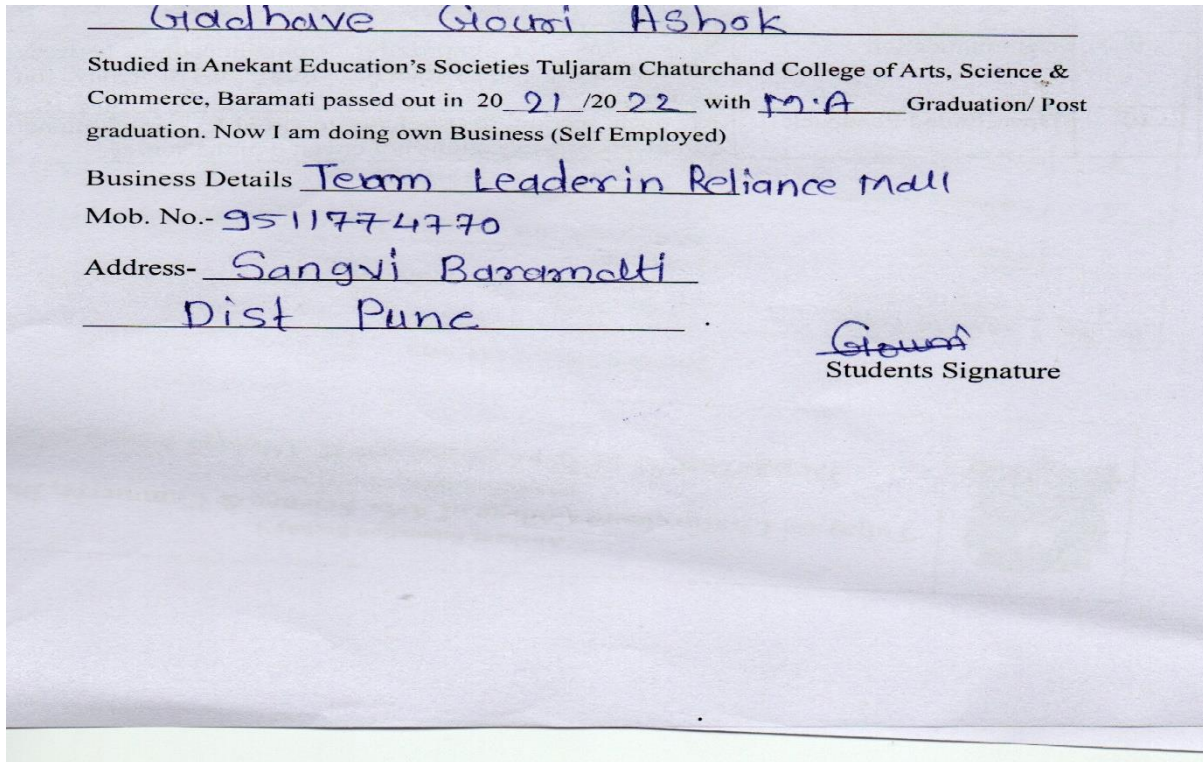 Gadhave Gouri Ashok
Studied in Anekant Education's Societies Tuljaram Chaturchand College of Arts, Science &
Commerce, Baramati passed out in 20 21 /20 22 with M.A Graduation/ Post
graduation. Now I am doing own Business (Self Employed)
Business Details Team Leader in Reliance Mall
Mob. No.- 9511774770
Address- Sangvi Baramati
Dist Pune
Gouri
Students Signature